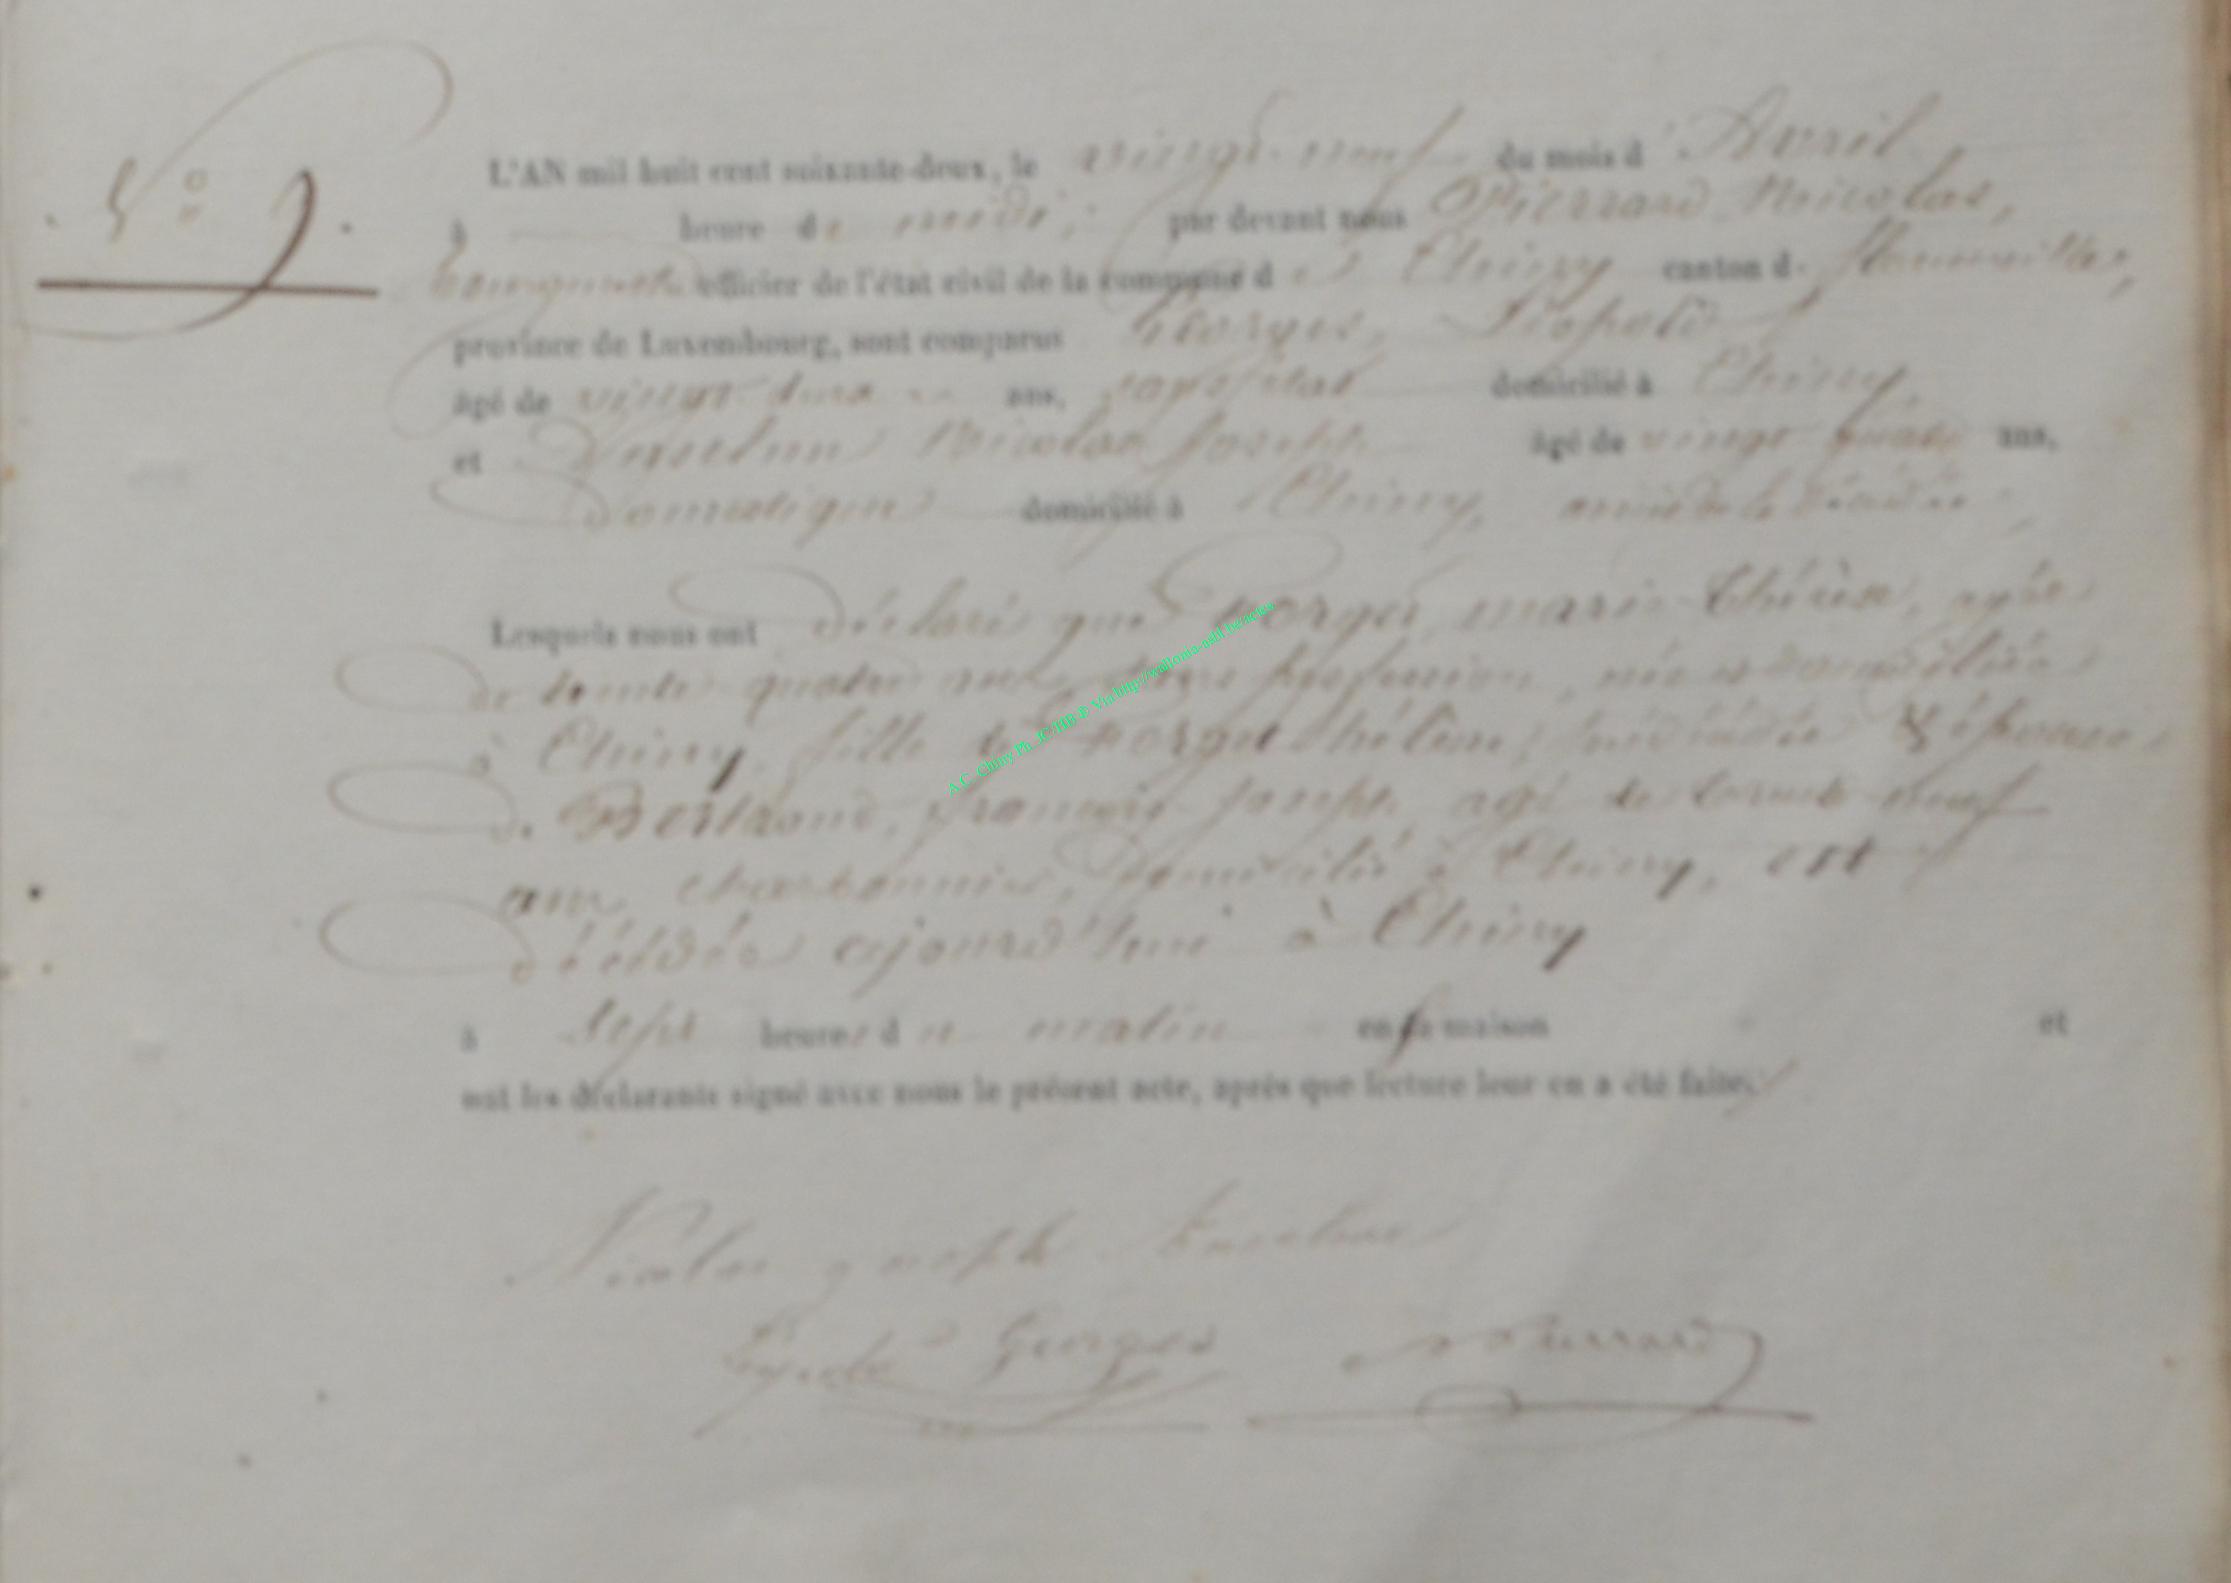 N° 9.
L'AN mil huit cent soixante-deux, le vingt-neuf du mois d'Avril,
à heure de midi, par devant nous Pierrard Nicolas,
bourgmestre officier de l'état civil de la commune de Chiny canton de Florenville,
province de Luxembourg, sont comparus Georges, Léopold
âgé de vingt deux ans, domicilié à Chiny,
et Anselme Nicolas Joseph âgé de vingt quatre ans,
domestique domicilié à Chiny, amis de la décédée,
Lesquels nous ont déclaré que Georges, marie-Thérèse, agée
de trente quatre ans, sans profession, née et domiciliée
à Chiny, fille de Georges hélène, décédée & épouse
de Bertrand, françois Joseph agé de trente neuf
ans, charbonnier, domicilié à Chiny, est
décédée aujourd'hui à Chiny
à sept heures du matin en sa maison et
ont les déclarants signé avec nous le présent acte, après que lecture leur en a été faite.
Nicolas joseph Anselme
Léopold Georges N Pierrard
A.C. Chiny Ph. JC/HB ® Via http://wallonia-asbl.be/actes